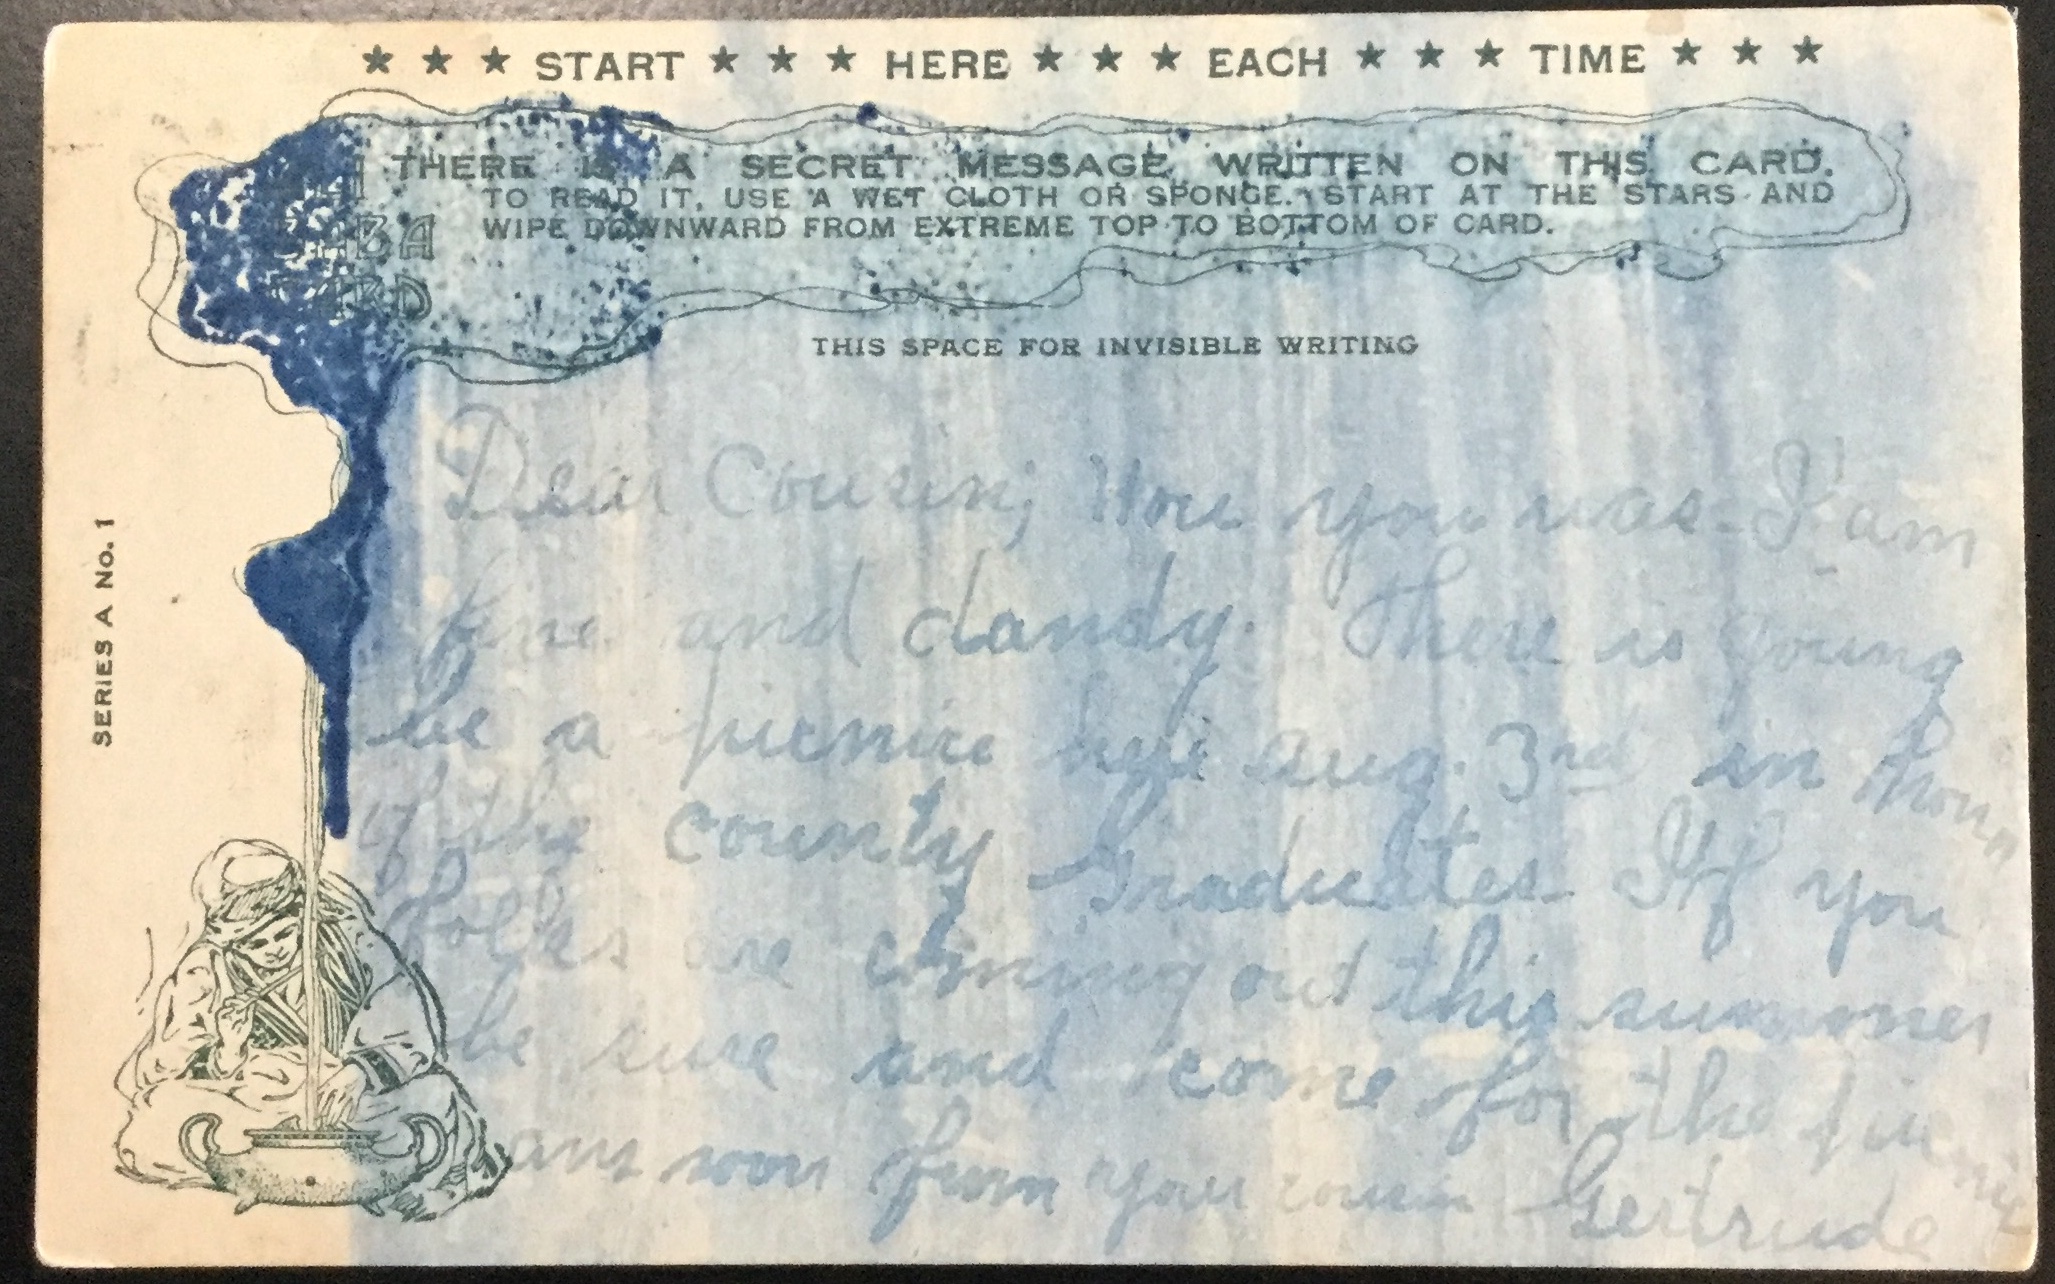 ★ ★ ★ START ★ ★ ★ HERE ★ ★ ★ EACH ★ ★ ★ TIME ★ ★ ★
THERE IS A SECRET MESSAGE WRITTEN ON THIS CARD.
TO READ IT, USE A WET CLOTH OR SPONGE. START AT THE STARS AND
WIPE DOWNWARD FROM EXTREME TOP TO BOTTOM OF CARD.
THIS SPACE FOR INVISIBLE WRITING
SERIES A No. 1
Dear Cousin; How you was. I am
fine and dandy. There is going
be a picnic here Aug. 3rd in honor
of the county Graduates If you
folks are coming out this summer
be sure and come for the picnic
ans soon from your cousin Gertrude